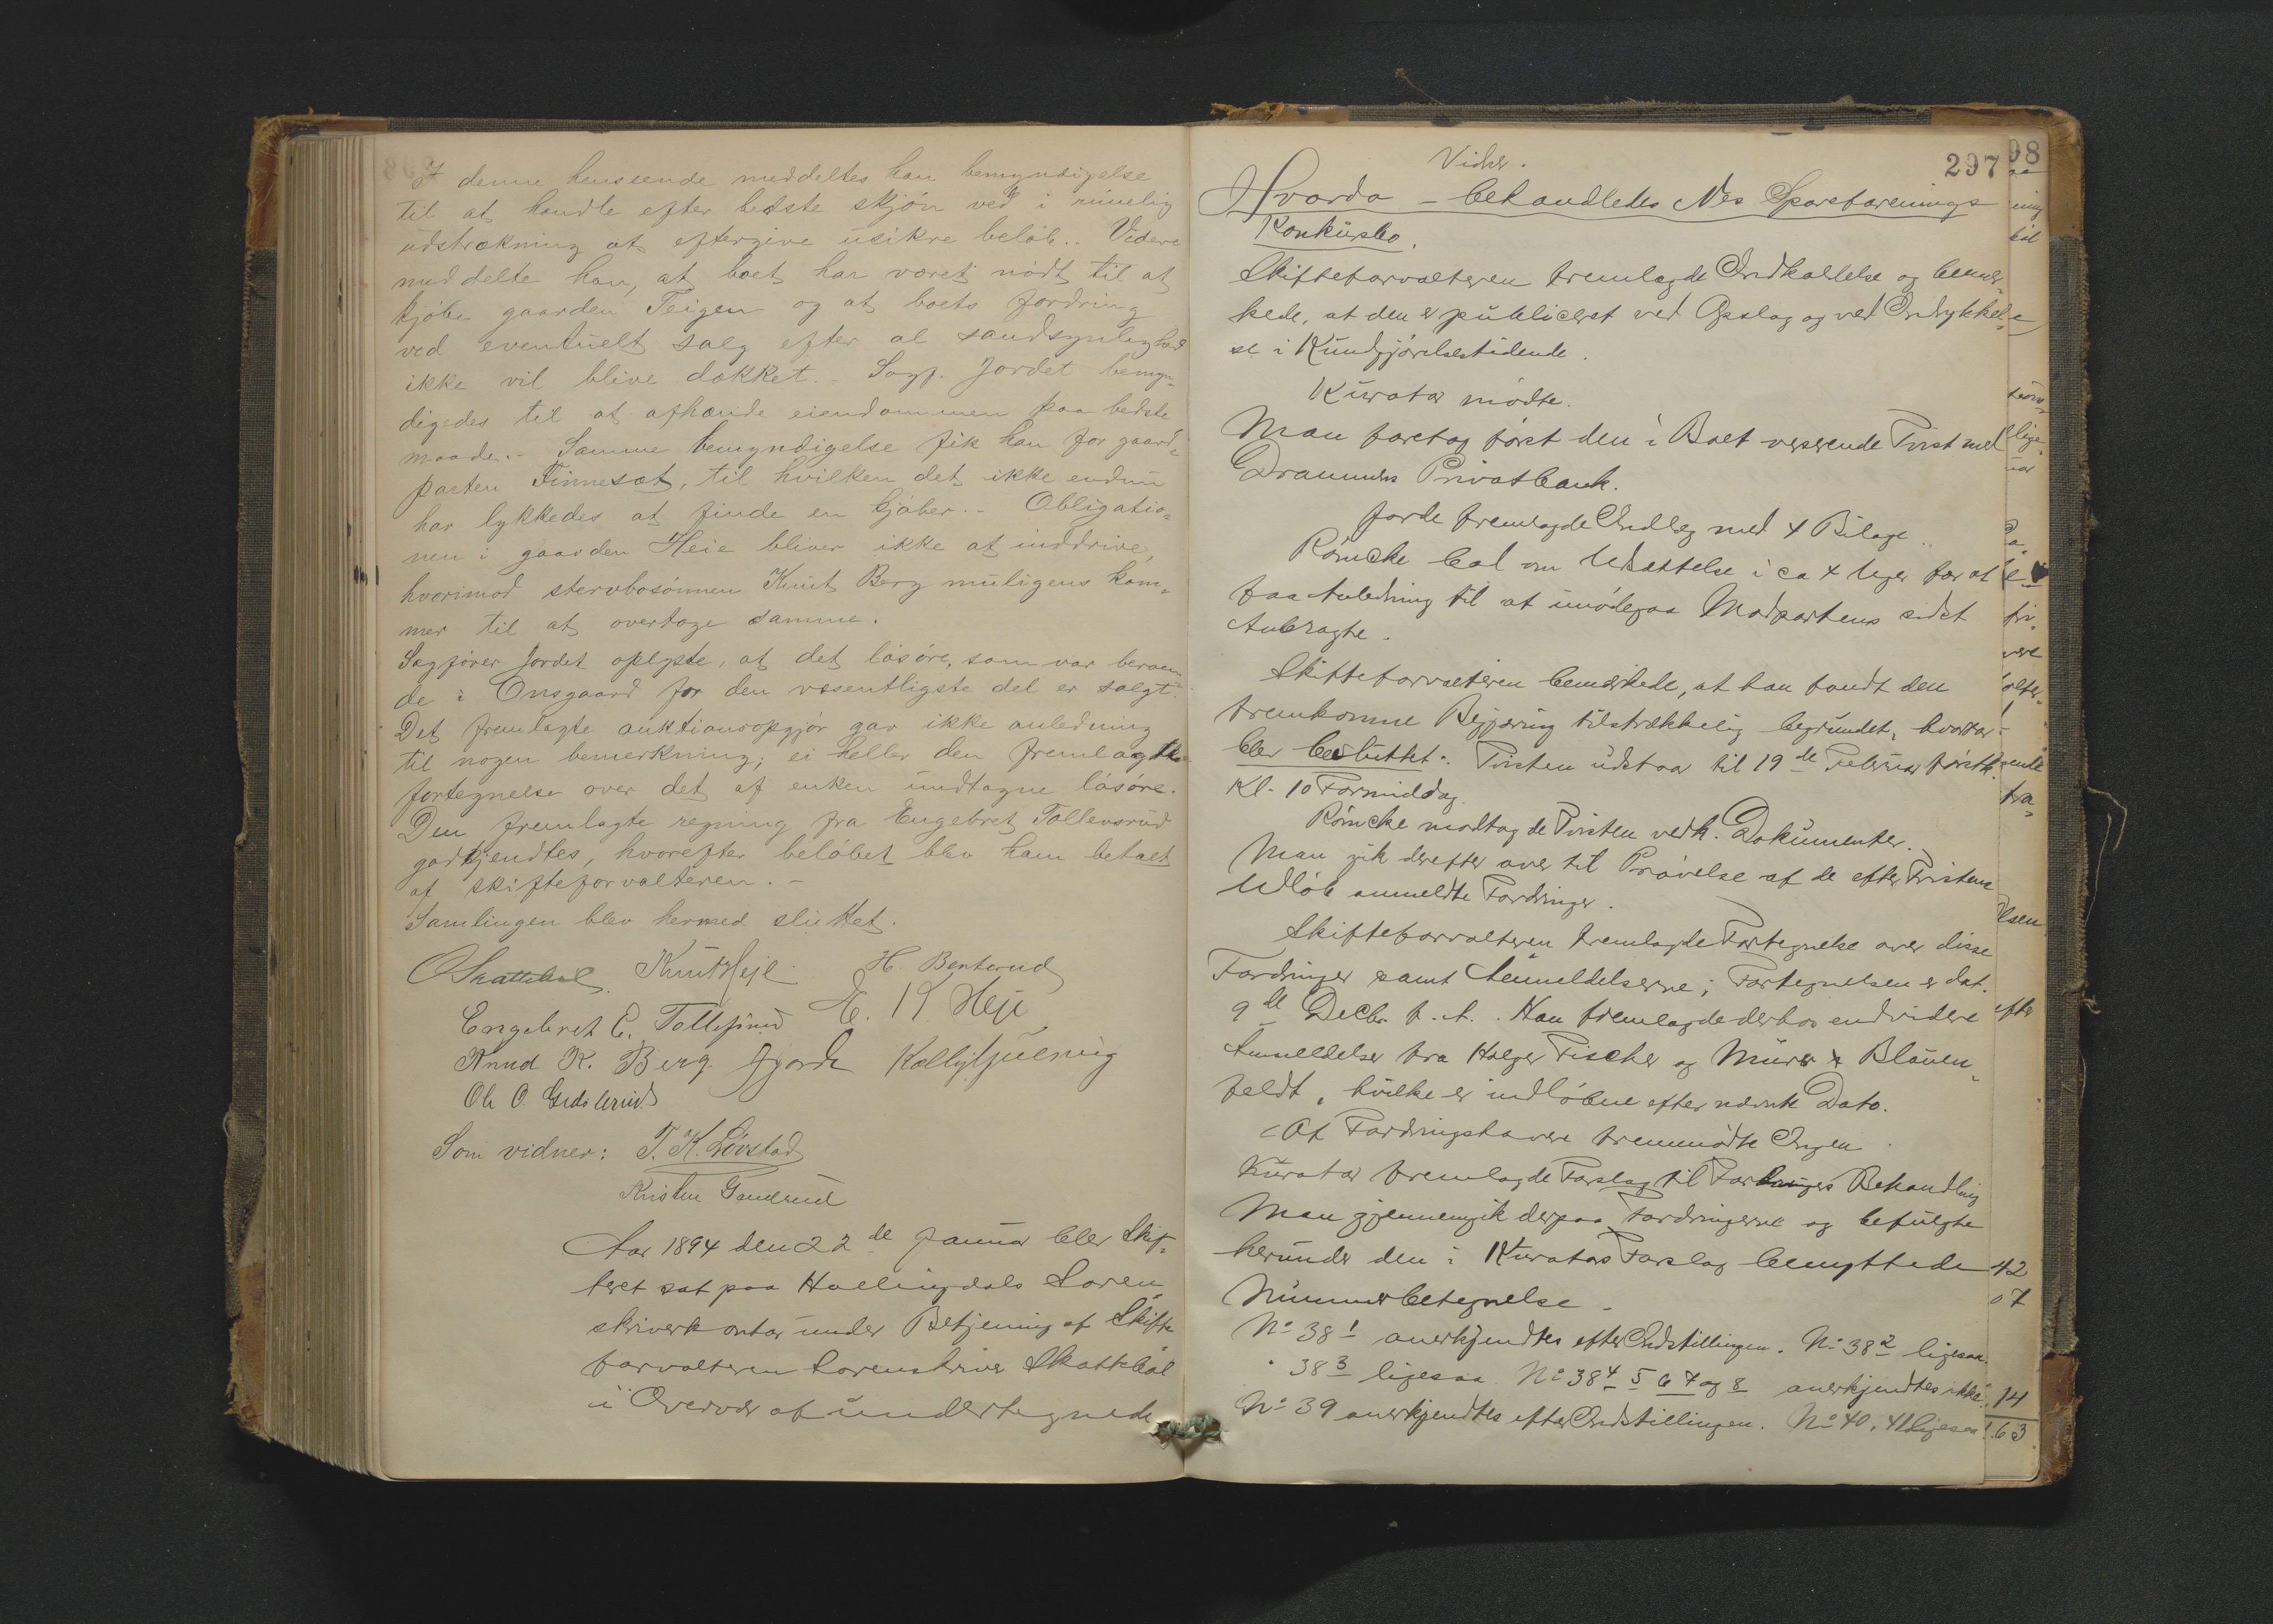 I denne henseende meddeltes han bemyndigelse
til at handle efter bedste skjön ved i rimelig
udstrækning at eftergive usikre belöb.. Videre
meddelte han, at boet har været nödt til at
kjöbe gaarden Teigen og at boets fordring
ved eventuelt salg efter al sandsynlighed
ikke vil blive dækket.- Sagf. Jordet bemyn-
digedes til at afhænde eiendommen paa bedste
maade.- Samme bemyndigelse fik han for gaard-
parten Finnesæt, til hvilken det ikke endnu
har lykkedes at finde en kjöber.- Obligatio-
nen i gaarden Heie bliver ikke at inddrive,
hvorimod stervbosönnen Knut Berg muligens kom-
mer til at overtage samme.
Sagförer Jordet oplyste, at det lösöre, som var beroen-
de i Onsgaard for den væsentligste del er solgt.
Det fremlagte auktionsopgjör gav ikke anledning
til nogen bemerkning; ei heller den fremlagte
fortegnelse over det af enken undtagne lösöre.
Den fremlagte regning fra Engebret Tollevsrud
godkjendtes, hvorefter belöbet blev ham betalt
af skifteforvalteren.-
Samlingen blev hermed sluttet.
OSkattebøl. Knut Heje H. Benterud
Engebret E. Tollefsrud E. K Heje
Knud K. Berg
Ole O.
Som vidner: T. K. Lövstad
Kristen Gandrud
Aar 1894 den 22de Januar blev Skif-
teret sat paa Hallingdals Soren-
skriverkontor under Betjening af Skifte
forvalteren Sorenskriver Skattebøl
i Overvær af undertegnede
297
Vidner.
Hvorda - behandledes Nes Spareforenings
Konkursbo.
Skifteforvalteren fremlagde Indkaldelse og bemær-
kede, at den er publiceret ved Opslag og ved Indrykkel-
se i Kundgjörelsestidende.
Kurator mödte.
Man foretog först den i Boet verserende Tvist med
Drammens Privatbank.
Jorde fremlagde Indlæg med 4 Bilage.
Römcke bad om Udsættelse i ca 4 Uger for at
faa Anledning til at imödegaa Modpartens sidst
Anbragte.
Skifteforvalteren bemærkede, at han fandt den
fremkomne Begjæring tilstrækkelig begrundet, hvorfor
blev besluttet: Tvisten udstaar til 19de Februar förstk.
Kl. 10 Formiddag.
Römcke modtog de Tvisten vedk. Dokumenter.
Man gik derefter over til Prövelse af de efter Fristens
Udlöb anmeldte Fordringer.
Skifteforvalteren fremlagde Fortegnelse over disse
Fordringer samt Anmeldelserne; Fortegnelsen er dat.
9de Decbr f. A. Han fremlagde derhos endvidere
Anmeldelser fra Holger Fischer og Murer & Blauen-
feldt, hvilke er indlöbne efter nævnte Dato.
Af Fordringshavere fremmödte Ingen.
Kurator fremlagde Forslag til Fordringers Behandling
Man gjennemgik derpaa Fordringerne og befulgte
herunder den i Kurators Forslag benyttede
Nummerbetegnelse.
No 38 1 anerkjendtes efter Indstillingen. No 38 2 ligesaa.
" 38 3 ligesaa No 38 4 5 6 7 og 8 anerkjendtes ikke.
No 39 anerkjendtes efter Indstillingen. No 40, 41 ligesaa
98
42
07
14
63